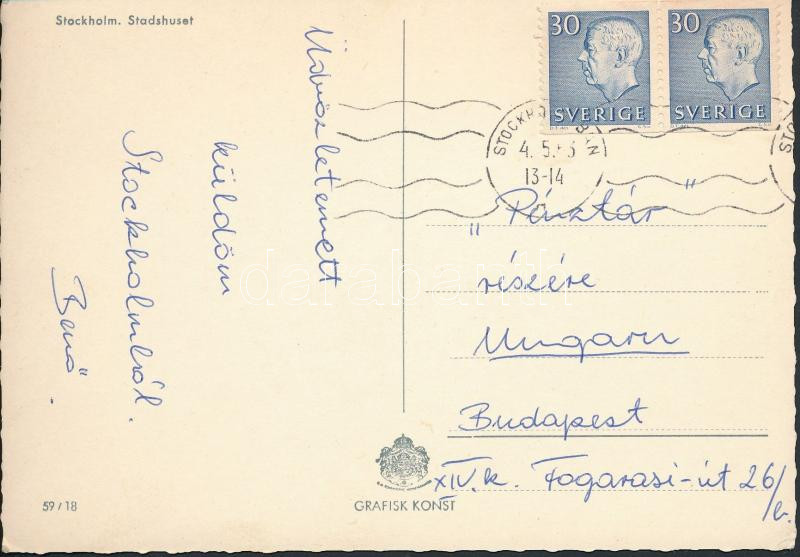 Stockholm. Stadshuset
Üdvözletemett
küldöm
Stockholmból.
Benő.
59/18
GRAFISK KONST
30 30
SVERIGE SVERIGE
4.5.
13-14
„Pénztár”
részére
Ungarn
Budapest
XIV.k. Fogarasi-út 26/b.
darabanth